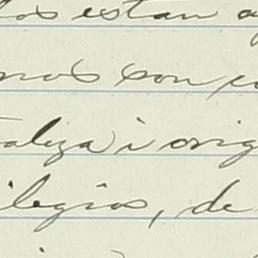 los estan a
nos son co
aliza i orig
ilegios, de